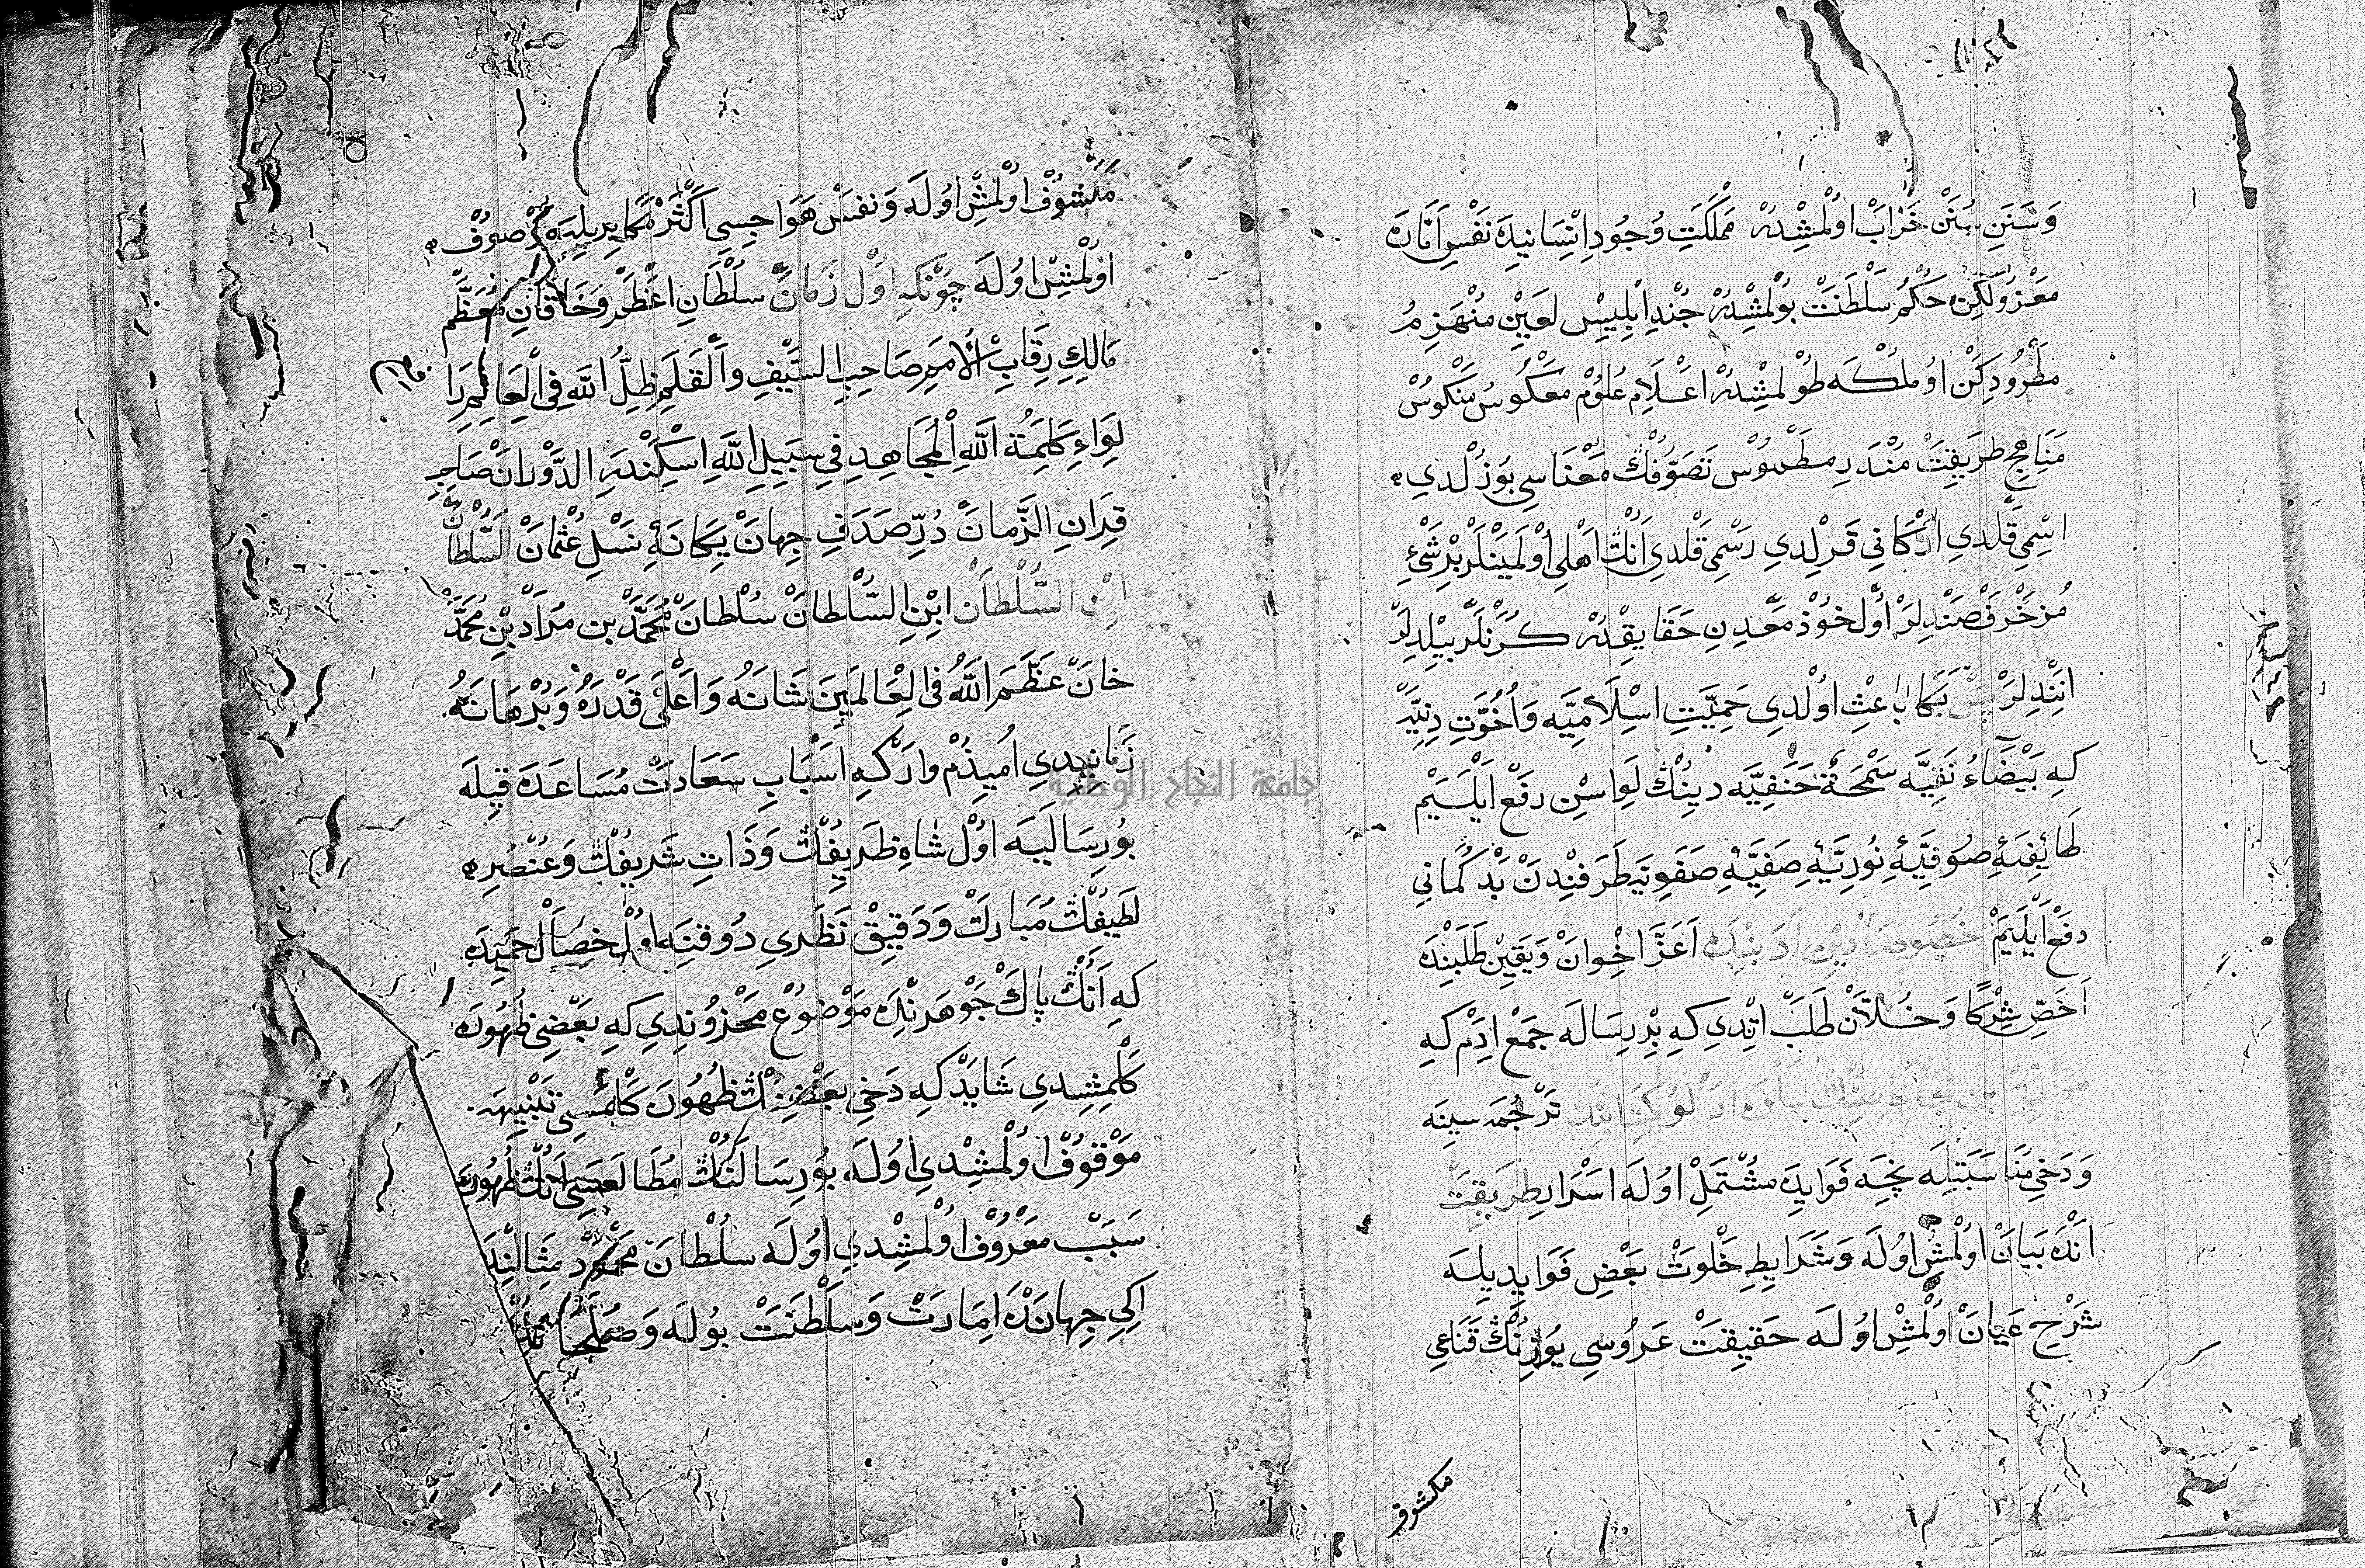 وَسَنَنِ سُنَنْ خَرَابْ اوُلْمِشْدُرْ مَمْلَكَتِ وُجُودِ اِنْسَانِيدَه نَفْسِ اَمَّارَه
مَعْزُولكِنْ حُكْمِ سَلْطَنَتْ بُولْمِشْدُرْ جُنْدِ اِبْلِيسِ لَعِينْ مُنْهَزِمُ
مَطْرُودِكَنْ اوُ مُلْكَه طُولْمِشْدُرْ اَعْلَامِ عُلُومْ مَعْكُوسْ مَنْكُوسْ
مَنَاهِجِ طَرِيقَتْ مُنْدَرِسْ مَطْمُوسْ تَصَوُّفُكْ مَعْنَاسِي بُوزُلْدِي
اِسْمِي قَلْدِي اَرْكَانِي قَرِلْدِي رَسْمِي قَلْدِي اَنُكْ اَهْلِي اوُلْمَيَنْلَرْ بِرْ شَيْءِ
مُزَخْرَفْ صَنْدِلَرْ اوُلْ خُوذْ مَعْدِنِ حَقَايِقْدُرْ كُرْنَلَرْ بِيلْدِلَرْ
اِنَّنْدِلَرْ پَسْ بَكَا بَاعِثْ اوُلْدِي حَمِيَّتِ اِسْلَامِيَّه وَاُخُوَّتِ دِينِيَّه
كِه بَيْضَاءُ نَقِيَّه سَمْحَةْ حَنَفِيَّه دِينُكْ لِوَاسِنْ رَفْعْ اَيْلَيَمْ
طَايِفَهٔ صُوفِيَّهٔ نُورِيَّهٔ صَفِيَّهٔ صَفَوِيَه طَرَفِنْدَنْ بَدْ كُمَانِي
دَفْعْ اَيْلَيَمْ خُصُوصَا دِينْ اَعَزِّ اِخْوَانْ وَيَقِينْ طَلَبِنْدَه
اَخَصِّ شِرْكَا وَخُلَّانْ طَلَبْ اِتْدِي كِه بِرْ رِسَالَه جَمْعْ اِدَمْ كِه
تَرْجُمَه سِينَه
وَدَخِي مُنَاسَبَتِلَه نِچَه فَوَايِدَه مُشْتَمِلْ اوُلَه اَسْرَارِ طَرِيقَتْ
اَنْدَه بَيَانْ اوُلْمِشْ اوُلَه وَشَرَايِطِ خَلْوَتْ بَعْضِ فَوَايِدِيلَه
شَرْحِ عَيَانْ اوُلْمِشْ اوُلَه حَقِيقَتْ عَرُوسِي يُوزِنُكْ قَنَاعِي
مكشوف
مَكْشُوفْ اوُلْمِشْ اوُلَه وَنَفْسْ هَوَاجِسِي اَكْثَرْ مَكَايِدِيلَه مَصْرُوفْ
اوُلْمِشْ اوُلَه چُونْكِه اوُلْ زَمَانْ سُلْطَانِ اَعْظَمْ وَخَاقَانِ مُعَظَّمْ
مَالِكِ رِقَابِ الْاُمَمِ صَاحِبِ السَّيْفِ وَالْقَلَمِ ظِلُّ اللّٰهِ فِي الْعَالَمِ رَا
لِوَاءِ كَلِمَةُ اللّٰهِ الْمُجَاهِدِ فِي سَبِيلِ اللّٰهِ اِسْكَنْدَرِ الدَّوْرَانْ صَاحِبِ
قِرَانِ الزَّمَانْ دُرِّ صَدَفِ جِهَانْ يَكَانَهٔ نَسْلِ عُثْمَانْ السُّلْطَانْ
ابْنِ السُّلْطَانْ ابْنِ السُّلْطَانْ سُلْطَانْ مُحَمَّدْ بن مُرَادْ بْنِ مُحَمَّدْ
خَانْ عَظَّمَ اللّٰهُ فِي الْعَالَمِينَ شَانَهُ وَاَعْلَى قَدْرَهُ وَبُرْهَانَهُ
زَمَانِيدِي اُمِيذُمْ وَارْدُرْ كِه اَسْبَابِ سَعَادَتْ مُسَاعَدَه قِيلَه
بُو رِسَالَيَه اوُلْ شَاهِ ظَرِيفُكْ وَذَاتِ شَرِيفُكْ وَعُنْصُرِه
لَطِيفُكْ مُبَارَكْ وَدَقِيقْ نَظَرِي دُوقِنَه اوُلْ خِصَالْ حَمِيدَه
كِه اَنُكْ پَاكْ جَوْهَرِنْدَه مَوْضُوعْ مَخْزُونِدِي كِه بَعْضِي ظُهُورَه
كَلْمِشِيدِي شَايَدْ كِه دَخِي بَعْضِنُكْ ظُهُورَه كَلْمَسِي تَنْبِيهَه
مَوْقُوفْ اوُلْمِشِدِي اوُلَه بُو رِسَالَنُكْ مُطَالَعَسِي اَنُكْ ظُهُورِنَه
سَبَبْ مَعْرُوفْ اوُلْمِشِدِي اوُلَه سُلْطَانْ مَحْمُودْ مِثَالِنْدَه
اِكِي جِهَانْدَه اِمَارَتْ وَسَلْطَنَتْ بُولَه وَصُلَحَا